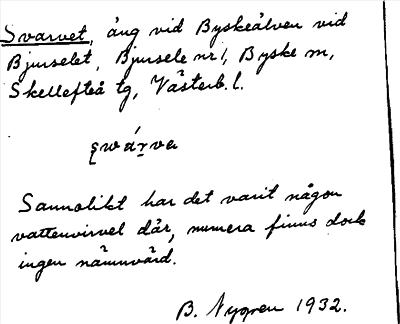 Svarvet, äng vid Byskeälven vid
Bjurselet, Bjursele nr 1, Byske sn,
Skellefteå tg, Västerb. l.
swárva
Sannolikt har det varit någon
vattenvirvel där, numera finns dock
ingen nämnvärd.
B. Nygren 1932.